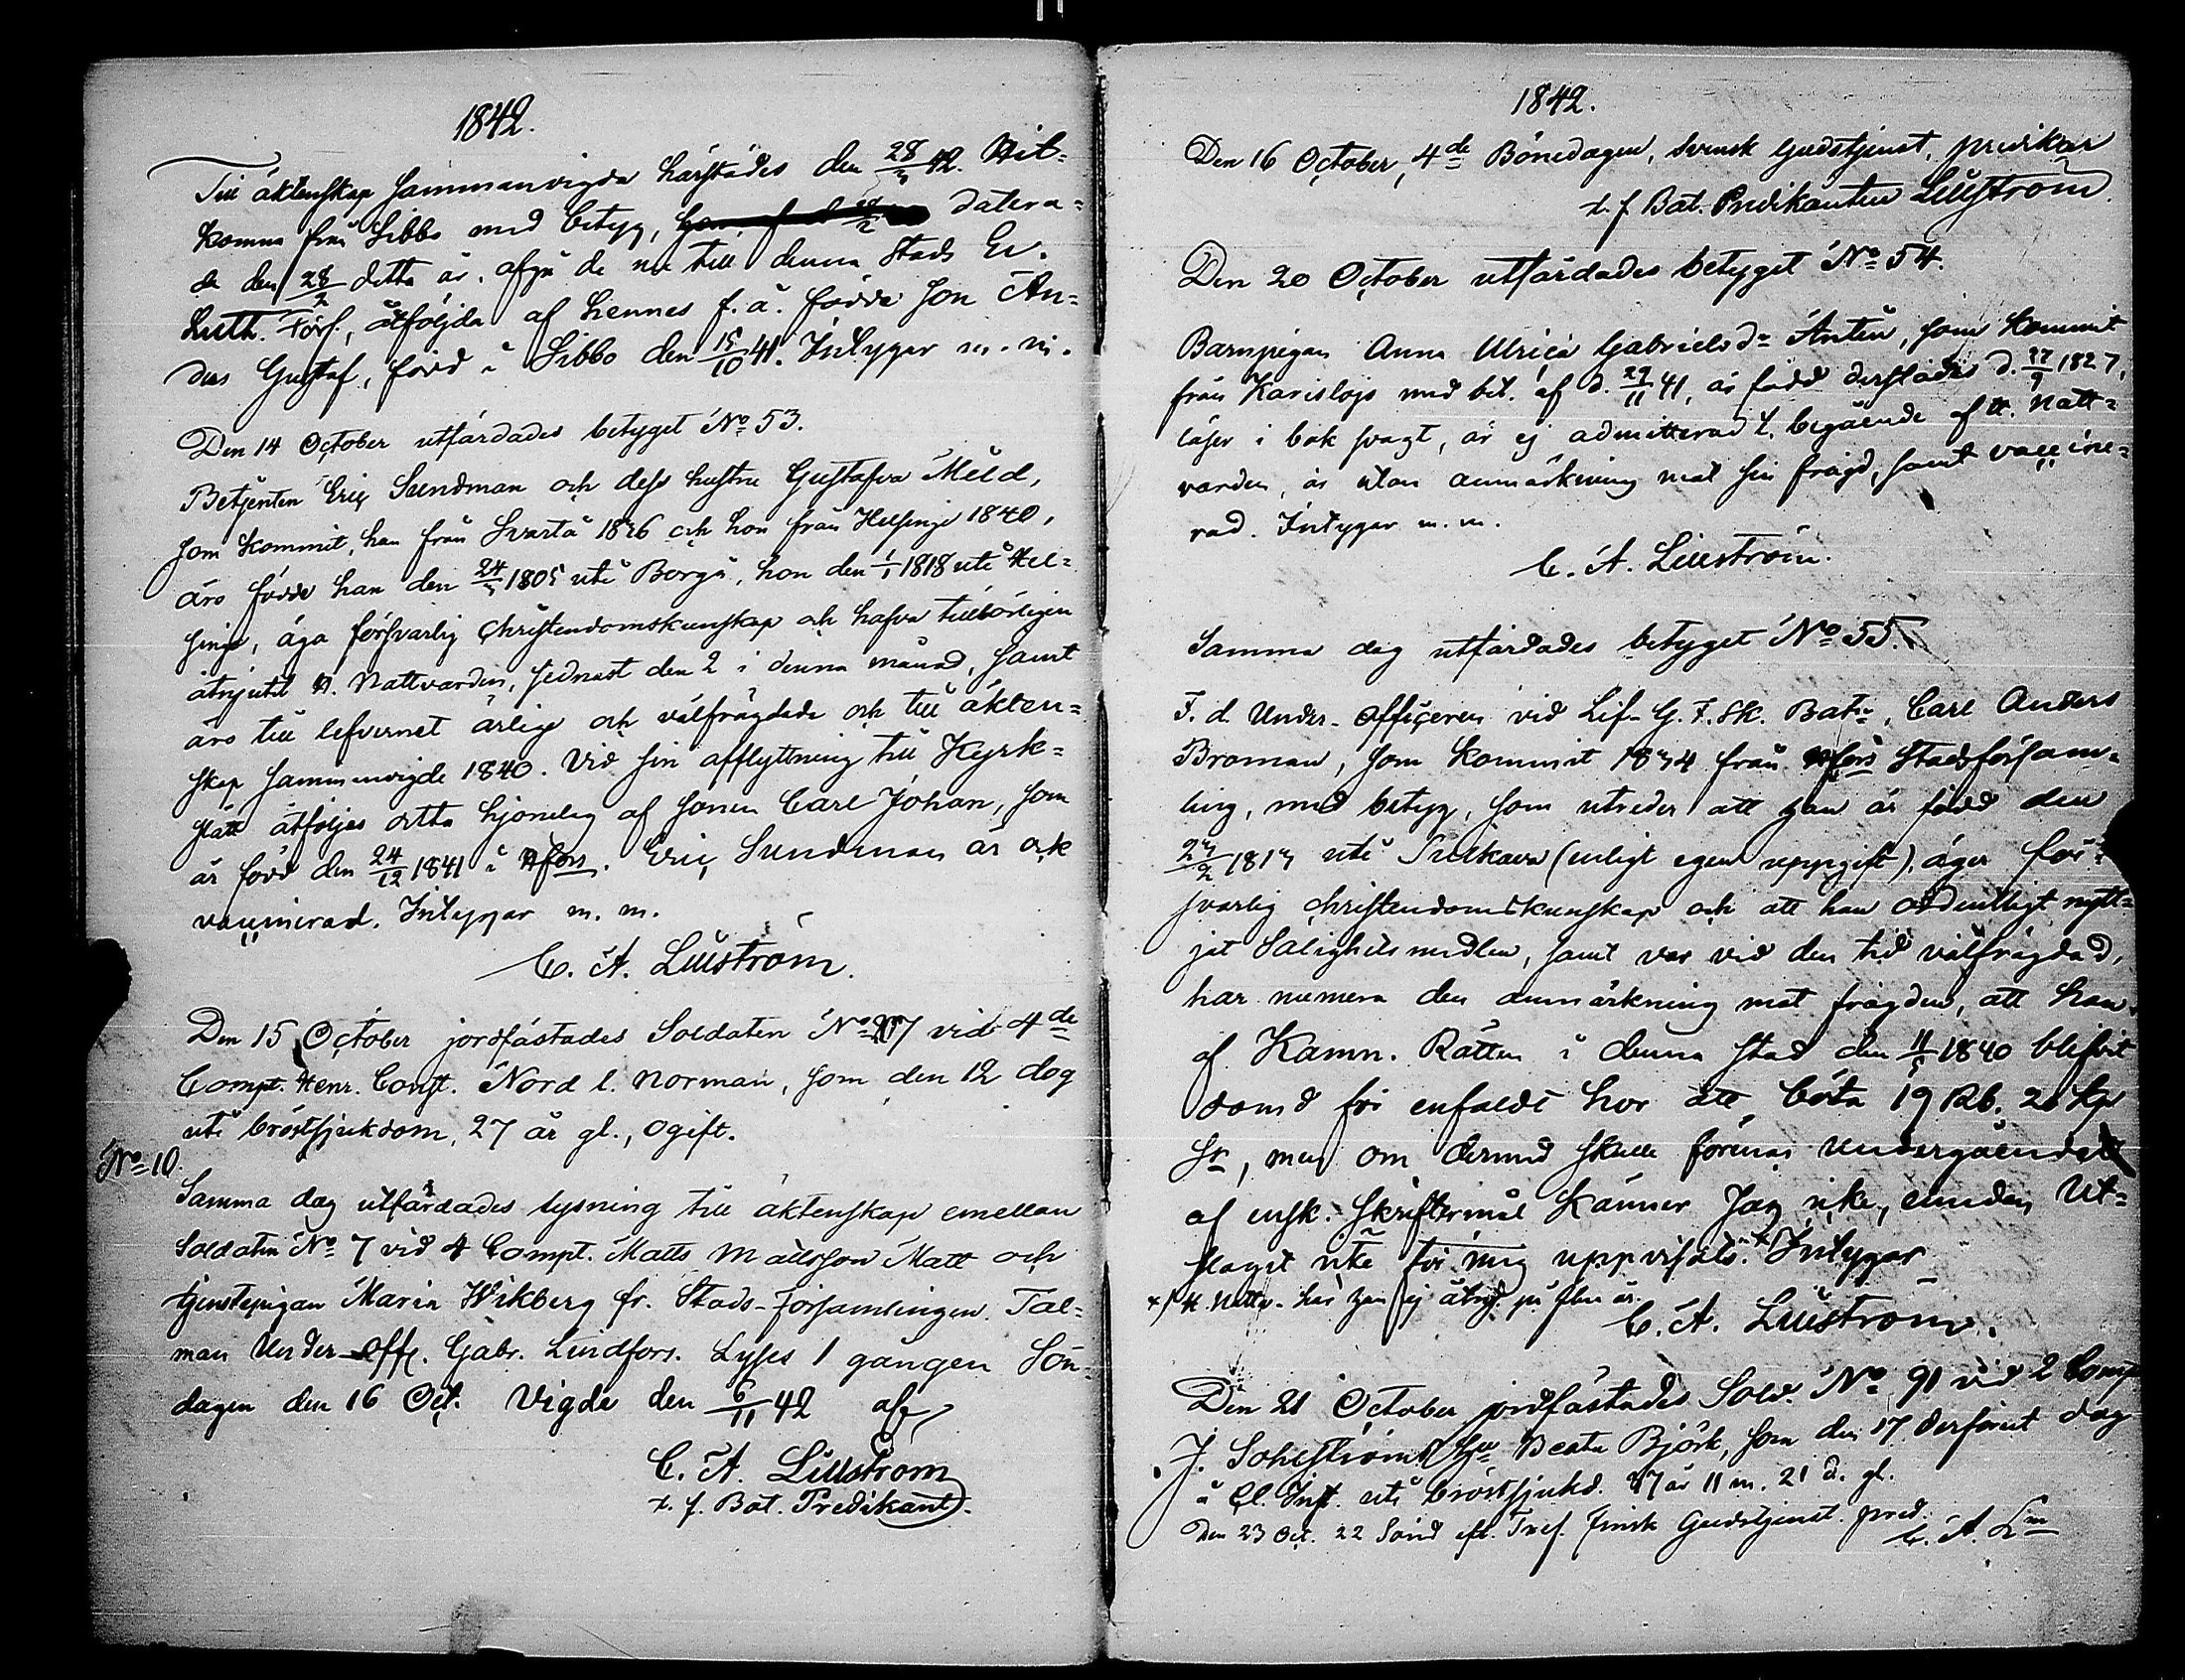 1842.
Till äktenskap sammanvigda härstädes den 28/3 42. Hit-
komna från Sibbo med betyg, datera-
de den 28/2 detta år, afgå de nu till denna Stads Ev.
Luth. Förs., åtföljda af hennes f. ä. födde son An-
ders Gustaf, född i Sibbo den 15/10 41. Intygar m. m.
Den 14 October utfärdades betyget No 53.
Betjenten Eric Sundman och dess hustru Gustafva Meld,
som kommit, han från Svartå 1836 och hon från Helsinge 1840,
äro födde han den 24/3 1805 uti Borgå, hon den 1/1 1818 uti Hel-
singe, äga försvarlig Christendomskunskap och hafva tillbörligen
åtnjutit H. Nattvarden, sednast den 2 i denna månad, samt
äro till lefvernet ärlige och välfrägdade och till äkten-
skap sammanvigde 1840. Vid sin afflyttning till Kyrk-
slätt åtföljes detta hjonelag af sonen Carl Johan, som
är född den 24/12 1841 i Hfors. Eric Sundman är ock
vaccinerad. Intygar m. m.
C. A. Lillström.
Den 15 October jordfästades Soldaten No 87 vid 4de
Comp. Henr. Const. Nord l. Norman, som den 12 dog
uti bröstsjukdom, 27 år gl., ogift.
No 10.
Samma dag utfärdades lysning till äktenskap emellan
Soldaten No 7 vid 4 Comp. Matts Mattsson Matt och
tjenstepigan Maria Wikberg fr. Stads-församlingen. Tal-
man Under-Offc. Gabr. Lindfors. Lyses 1 gången Sön-
dagen den 16 Oct. Vigde den 6/11 42 af
C. A. Lillström
t. f. Bat. Predikant.
1842.
Den 16 October, 4de Bönedagen, Svensk gudstjenst, predikar
t. f. Bat. Predikanten Lillström.
Den 20 October utfärdades betyget No 54.
Barnpigan Anna Ulrica Gabrielsdr Antin, som kommit
från Karislojo med bet. af d. 29/11 41, är född derstädes d. 27/9 1827,
läser i bok svagt, är ej admitterad t. begående af H. Natt-
varden, är utan anmärkning mot sin frägd, samt vaccine-
rad. Intygar m. m.
C. A. Lillström.
Samma dag utfärdades betyget No 55.
F. d. Under-Officeren vid Lif-G. F. Sk. Batn, Carl Anders
Broman, som kommit 1834 från Hfors Stadsförsam-
ling, med betyg, som utreder att han är född den
23/2 1813 uti Pulkava (enligt egen uppgift), äger för-
svarlig christendomskunskap och att han ordentligt nytt-
jat Salighetsmedlen, samt var vid den tid välfrägdad,
har numera den anmärkning mot frägden, att han
af Kämn. Rätten i denna stad den 11/5 1840 blifvit
dömd för enfaldt hor att böta 19 Rub. 20 kp
Sr, men om dermed skulle förenas undergåendet
af ensk. skriftermål känner Jag icke, emedan Ut-
slaget icke för mig uppvisats. x) Intygar
x) H. Nattv. har han ej åtnj. på flere år.
C. A. Lillström.
Den 21 October jordfästades Sold. No 91 vid 2 Comp
J. Sohlströms hu Beata Björk, som den 17 derförut dog
å Cl. Inst. uti bröstsjukd. 37 år 11 m. 21 d. gl.
Den 23 Oct. 22 Sönd eft. Tref. finsk Gudstjenst. pred.
C. A. Lm